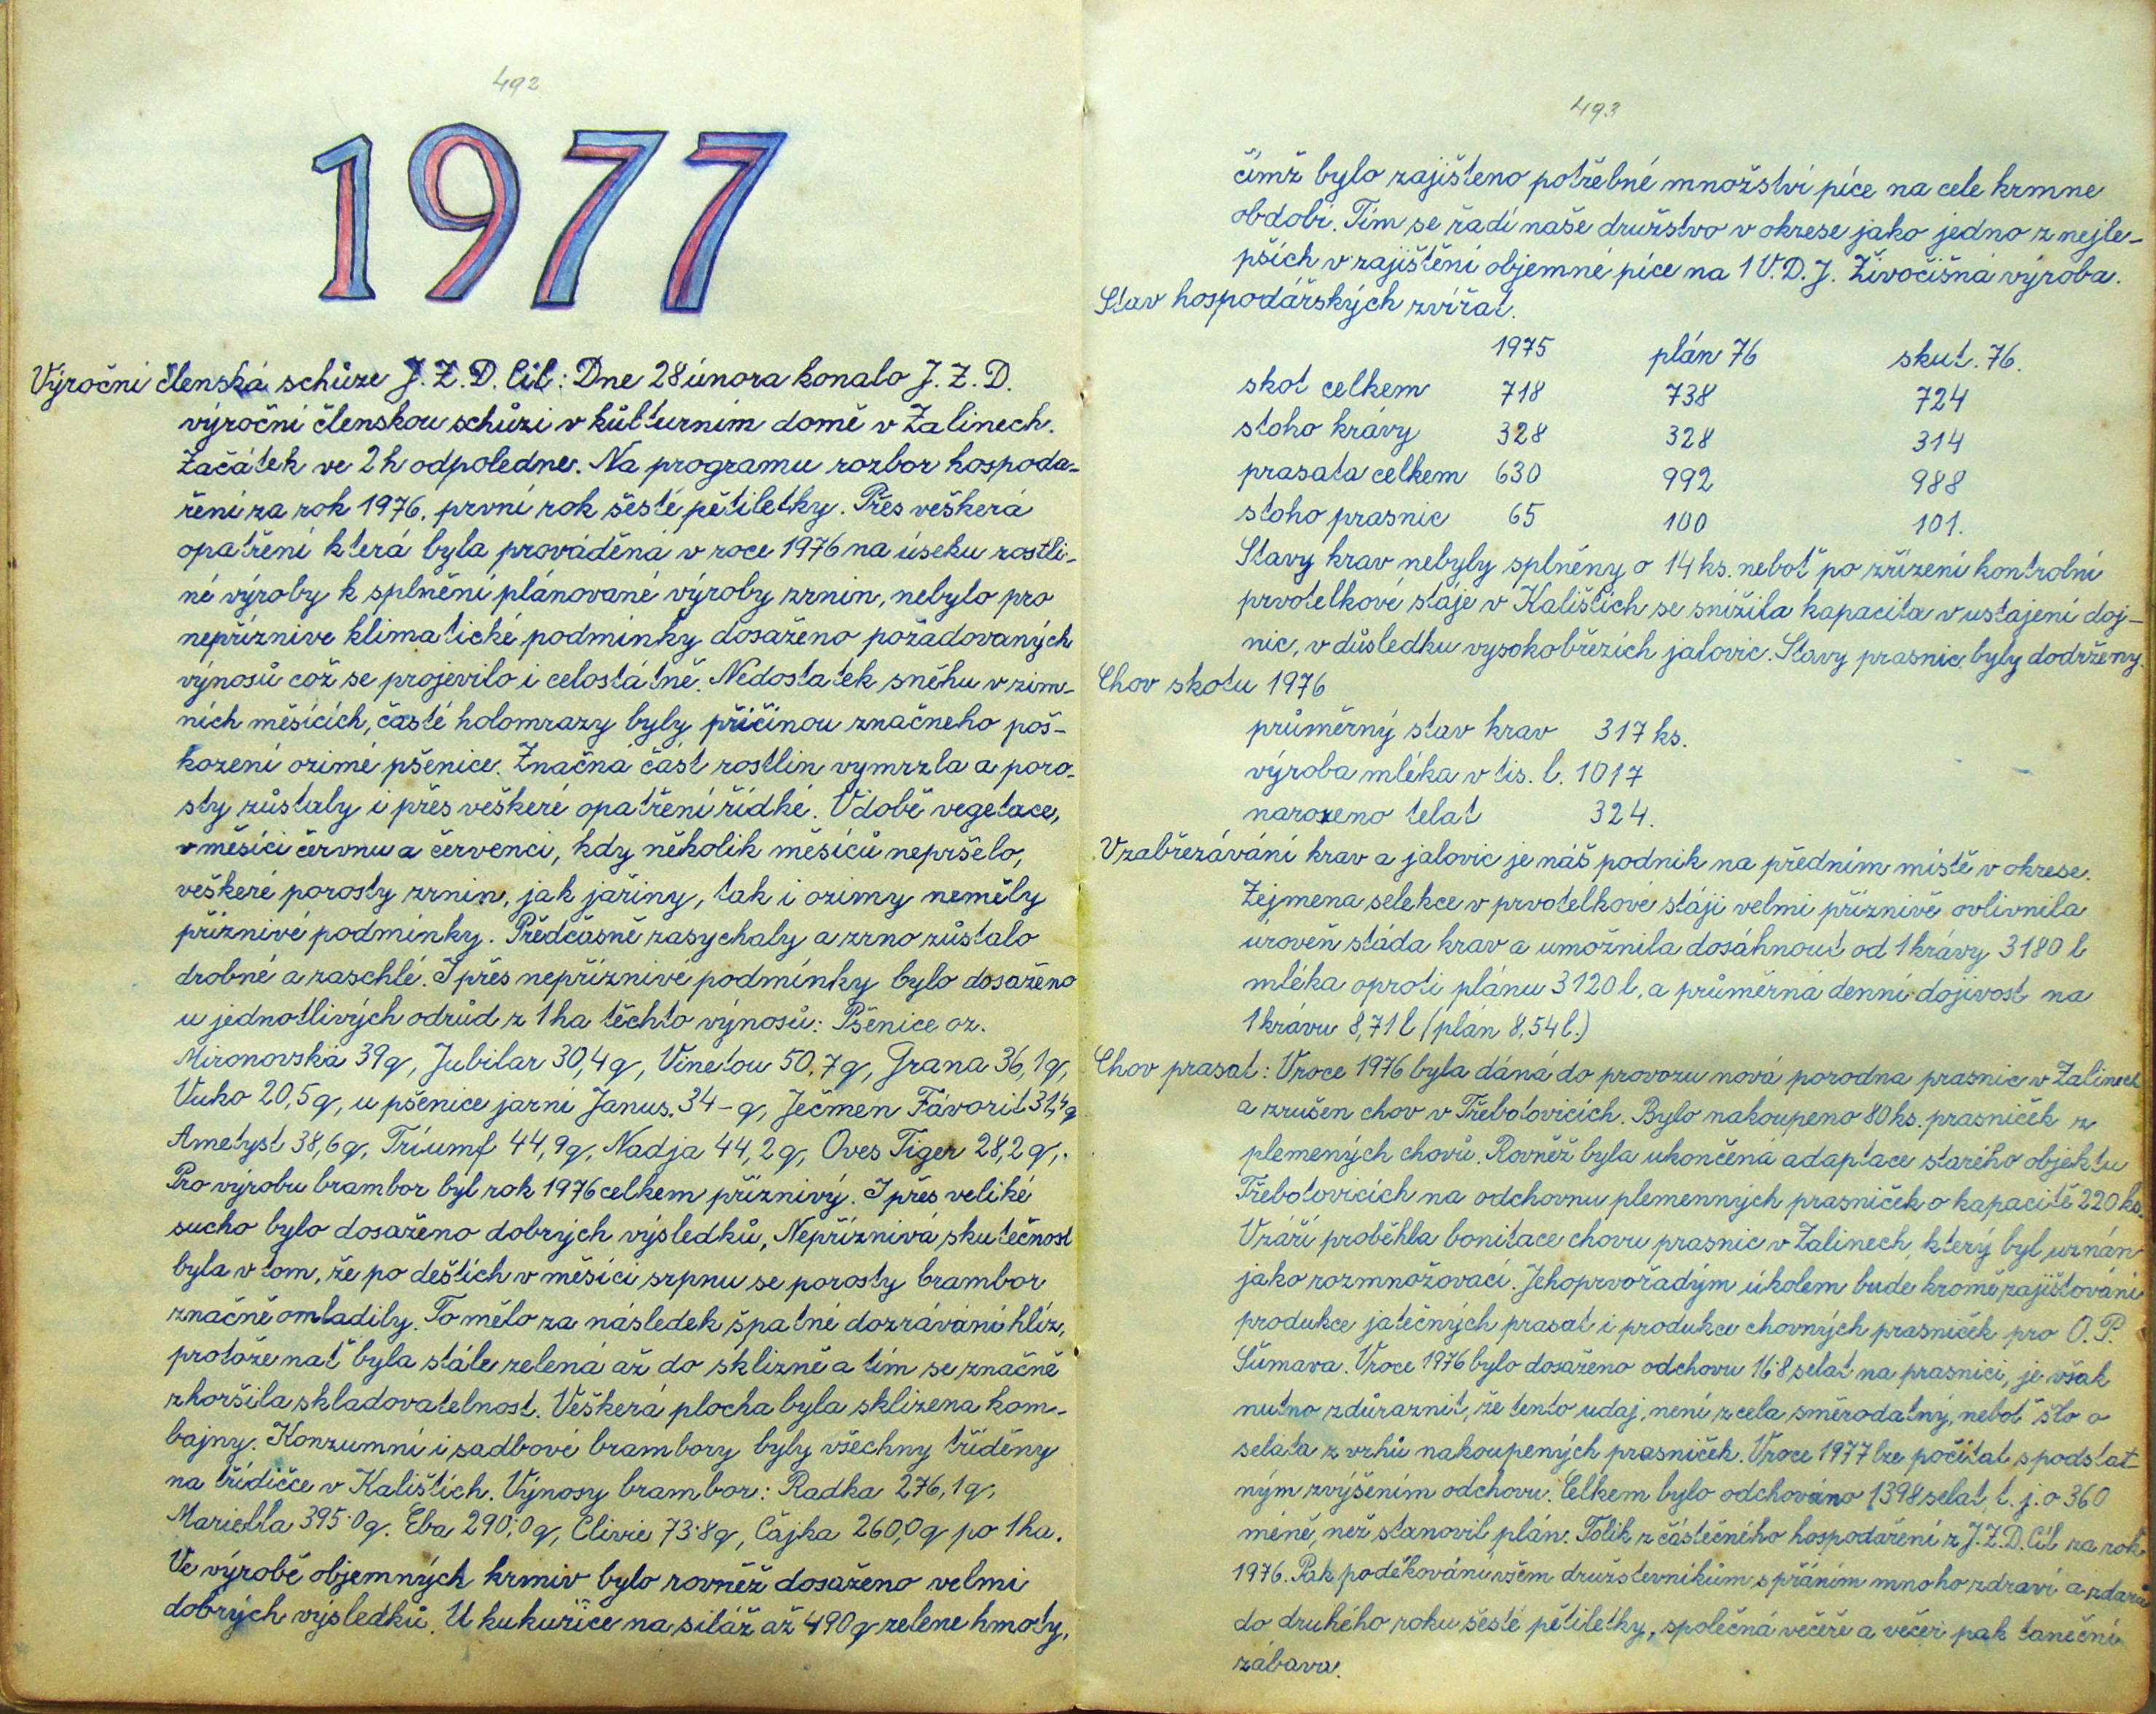 492
1977
Výroční členská schůze J.Z.D. Cíl: Dne 28 února konalo J.Z.D.
výroční členskou schůzi v kůlturním domě v Zalinech.
Začátek ve 2h odpoledne. Na programu rozbor hospoda-
ření za rok 1976, první rok šesté pětiletky. Přes veškerá
opatření která byla prováděná v roce 1976 na úseku rostli-
né výroby k splnění plánované výroby zrnin, nebylo pro
nepříznivé klimatické podmínky dosaženo požadovaných
výnosů což se projevilo i celostátně. Nedostatek sněhu v zim-
ních měsících, časté holomrazy byly příčinou značneho poš-
kození ozimé pšenice. Značná část rostlin vymrzla a poro-
sty zůstaly i přes veškeré opatření řídké. V době vegetace,
v měsíci červnu a červenci, kdy několik měsíců nepršelo,
veškeré porosty zrnin, jak jařiny, tak i ozimy neměly
příznivé podmínky. Předčasně zasychaly a zrno zůstalo
drobné a zaschlé. I přes nepříznivé podmínky bylo dosaženo
u jednotlivých odrůd z 1 ha těchto výnosů: Pšenice oz.
Mironovská 39q, Jubilar 30,4q, Vinetou 50,7q, Grana 36,1q,
Vuho 20,5q, u pšenice jarní Janus. 34-q, Ječmen Fávorit 31,4q
Ametyst 38,6q, Triumf 44,9q, Nadja 44,2q, Oves Tiger 28,2q,.
Pro výrobu brambor byl rok 1976 celkem příznivý. I přes veliké
sucho bylo dosaženo dobrých výsledků, Nepříznivá skutečnost
byla v tom, že po deštích v měsíci srpnu se porosty brambor
značně omladily. To mělo za následek špatné dozrávání hlíz,
protože nať byla stále zelená až do sklizně a tím se značně
zhoršila skladovatelnost. Veškerá plocha byla sklizena kom-
bajny. Konzumní i sadbové brambory byly všechny tříděny
na třídičce v Kalištích. Výnosy brambor: Radka 276,1q,
Mariella 395.0q. Eba 290,0q, Clivie 73.8q, Čajka 260,0q po 1 ha.
Ve výrobě objemných krmiv bylo rovněž dosaženo velmi
dobrých výsledků. U kukuřice na siláž až 490q zelene hmoty,
493
čímž bylo zajišteno potřebné množství píce na cele krmne
období. Tím se řadí naše družstvo v okrese jako jedno z nejle-
pších v zajištění objemné píce na 1 V.D.J. Živočišná výroba.
Stav hospodářských zvířat.
1975 plán 76 skut. 76.
skot celkem 718 738 724
stoho krávy 328 328 314
prasata celkem 630 992 988
stoho prasnic 65 100 101.
Stavy krav nebyly splněny o 14 ks. neboť po zřízení kontrolní
prvotelkové stáje v Kalištích se snížila kapacita v ustájení doj-
nic, v důsledku vysokobřezích jalovic. Stavy prasnic byly dodrženy.
Chov skotu 1976
průměrný stav krav 317 ks.
výroba mléka v tis. l. 1017
narozeno telat 324.
V zabřezávání krav a jalovic je náš podnik na předním místě v okrese.
Zejmena selekce v prvotelkové stáji velmi příznivě ovlivnila
úroveň stáda krav a umožnila dosáhnout od 1 krávy 3180 l
mléka oproti plánu 3120 l, a průměrná denní dojivost na
1 krávu 8,71 l (plán 8,54 l.)
Chov prasat: V roce 1976 byla dáná do provozu nová porodna prasnic v Zalinech
a zrušen chov v Třebotovicích. Bylo nakoupeno 80 ks. prasniček z
plemených chovů. Rovněž byla ukončená adaptace starého objektu
Třebotovicích na odchovnu plemenných prasniček o kapacitě 220 ks.
V září proběhla bonitace chovu prasnic v Zalinech, který byl uznán
jako rozmnožovací. Jeho prvořadým úkolem bude kromě zajišťování
produkce jatečných prasat i produkce chovných prasniček pro O.P.
Šumava. V roce 1976 bylo dosaženo odchovu 16.8 selat na prasnici, je však
nutno zdůraznit, že tento udaj, není zcela směrodatný, neboť šlo o
selata z vrhů nakoupených prasniček. V roce 1977 lze počítat s podstat
ným zvýšením odchovu. Celkem bylo odchováno 1398 selat, t.j. o 360
méně, než stanovil plán. Tolik z částečného hospodaření z J.Z.D. Cíl za rok
1976. Pak poděkování všem družstevníkům s přáním mnoho zdraví a zdaru
do druhého roku šesté pětiletky, společná večeře a večer pak taneční
zábava.